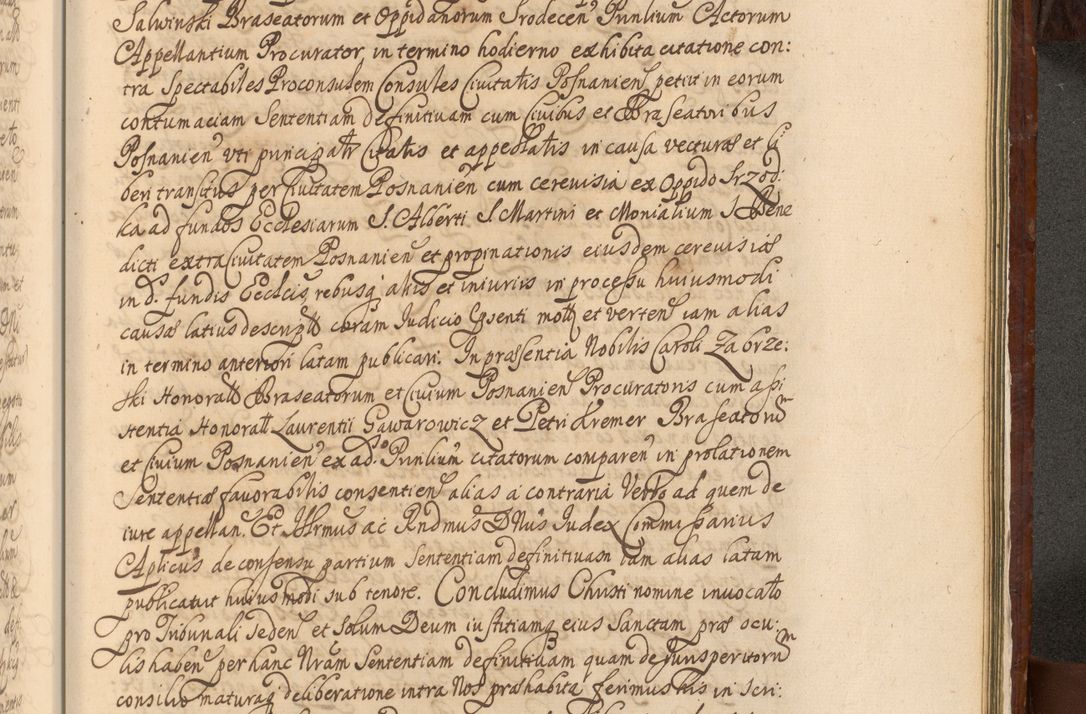 Salwinski Braseatorum et Oppidanorum Srodecen Punlium Actorum
Appellantium Procurator in termino hodierno exhibita citatione con:
tra Spectabiles Proconsulem Consules Civitatis Posnanien petiit in eorum
contumaciam Sententiam definitivam cum Civibus et Braseatoribus
Posnanien uti principalr Citatis et appellatis in causa vecturæ et li
beri transitus per Civitatem Posnanien cum cerevisia ex Oppido Srzod:
ka ad fundos Ecclesiarum S. Alberti S Martini et Monialium S Bene
dicti extra Civitatem Posnanien et propinationis eiusdem cerevisiæ
in d. fundis Ecclcis, rebusq aliis et iniuriis in processu huiusmodi
causæ latius descriptt coram Iudicio Ppsenti mott et verten iam alias
in termino anteriori latam publicari. In præsentia Nobilis Caroli Zabrze:
ski Honoratt Braseatorum et Civium Posnanien Procuratoris cum assi
stentia Honoratt Laurentii Gawarowicz et Petri Kremer Braseatorum
et Civium Posnanien ex ad. Punlium citatorum comparen in prolationem
Sententiæ favorabilis consentien alias a contraria Verbo ad quem de
iure appellan. Et Illrmus ac Rndmus DNus Iudex Commissarius
Aplicus de consensu partium Sententiam definitivam iam alias latam
publicavit huiusmodi sub tenore. Concludimus Christi nomine invocato
pro Tribunali seden et solum Deum iustitiamq eius Sanctam præ ocu:
lis haben per hanc Nram Sententiam definitivam quam de Iurisperitorum
consilio maturaq deliberatione intra Nos præhabita ferimus his in Scri: